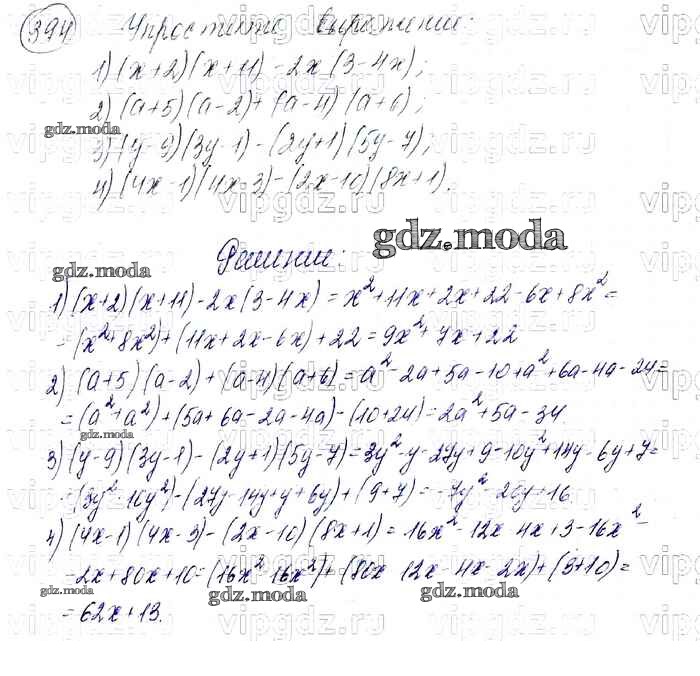 394 Упростите выражение:
1) (x+2)(x+11)-2x(3-4x);
2) (a+5)(a-2)+(a-4)(a+6);
gdz.moda
3) (y-9)(3y-1)-(2y+1)(5y-7);
4) (4x-1)(4x-3)-(2x-10)(8x+1).
gdz.moda
Решение:
gdz.moda
1) (x+2)(x+11)-2x(3-4x) = x²+11x+2x+22-6x+8x² =
= (x²+8x²)+(11x+2x-6x)+22 = 9x²+7x+22
2) (a+5)(a-2)+(a-4)(a+6) = a²-2a+5a-10+a²+6a-4a-24=
= (a²+a²)+(5a+6a-2a-4a)-(10+24)=2a²+5a-34.
gdz.moda
3) (y-9)(3y-1)-(2y+1)(5y-7)=3y²-y-27y+9-10y²+14y-5y+7=
= (3y²-10y²)-(27y-14y+y+6y)+(9+7)=-7y²-20y+16
4) (4x-1)(4x-3)-(2x-10)(8x+1)= 16x²-12x-4x+3-16x²-
-2x+80x+10=(16x²-16x²)+(80x-12x-4x-2x)+(3+10)=
gdz.moda gdz.moda
= 62x+13.
gdz.moda
vipgdz.ru